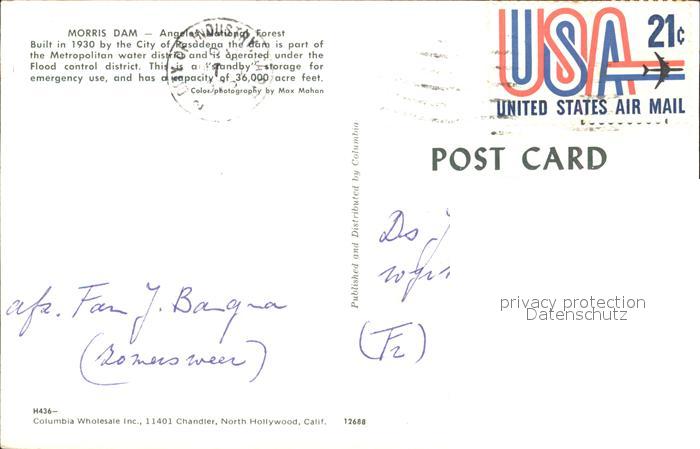 MORRIS DAM — Angeles National Forest
Built in 1930 by the City of Pasadena the dam is part of
the Metropolitan water district and is operated under the
Flood control district. This is a standby storage for
emergency use, and has a capacity of 36,000 acre feet.
Color photography by Max Mahan
CITY OF INDUSTRY
USA 21c
UNITED STATES AIR MAIL
POST CARD
Published and Distributed by Columbia
Ds J
afz. Fam J. Bangma
(Zomersweer)
(Fr)
privacy protection
Datenschutz
H436—
Columbia Wholesale Inc., 11401 Chandler, North Hollywood, Calif. 12688